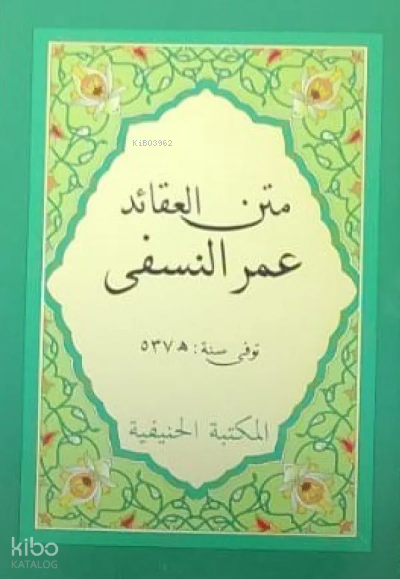 KiB03962
متن العقائد
عمر النسفى
توفى سنة: ه ٥٣٧
المكتبة الحنيفية
kibo
KATALOG